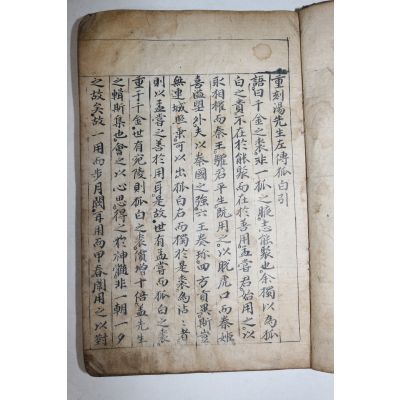 重刻湯先生左傳狐白引
語曰千金之裘非一狐之腋志能聚也余獨以為狐
白之貴不在於能聚而在於善用孟嘗君始用之以
取相權而秦王羅君平生既用之以脫虎口而秦姬
喜溢望外夫以秦國之強六王奏珎四方貢異斯豈
無連城照乘可以出狐白右而獨於是裘為沾〻者
則以孟嘗之善於用耳是故世有孟嘗而狐白之裘
重于千金世有宛陵則狐白之裘價增十倍盖先生
之輯斯集也會之以心思得之於神髓非一朝一夕
之故矣故一用而步月闕再用而甲春闈用之以對